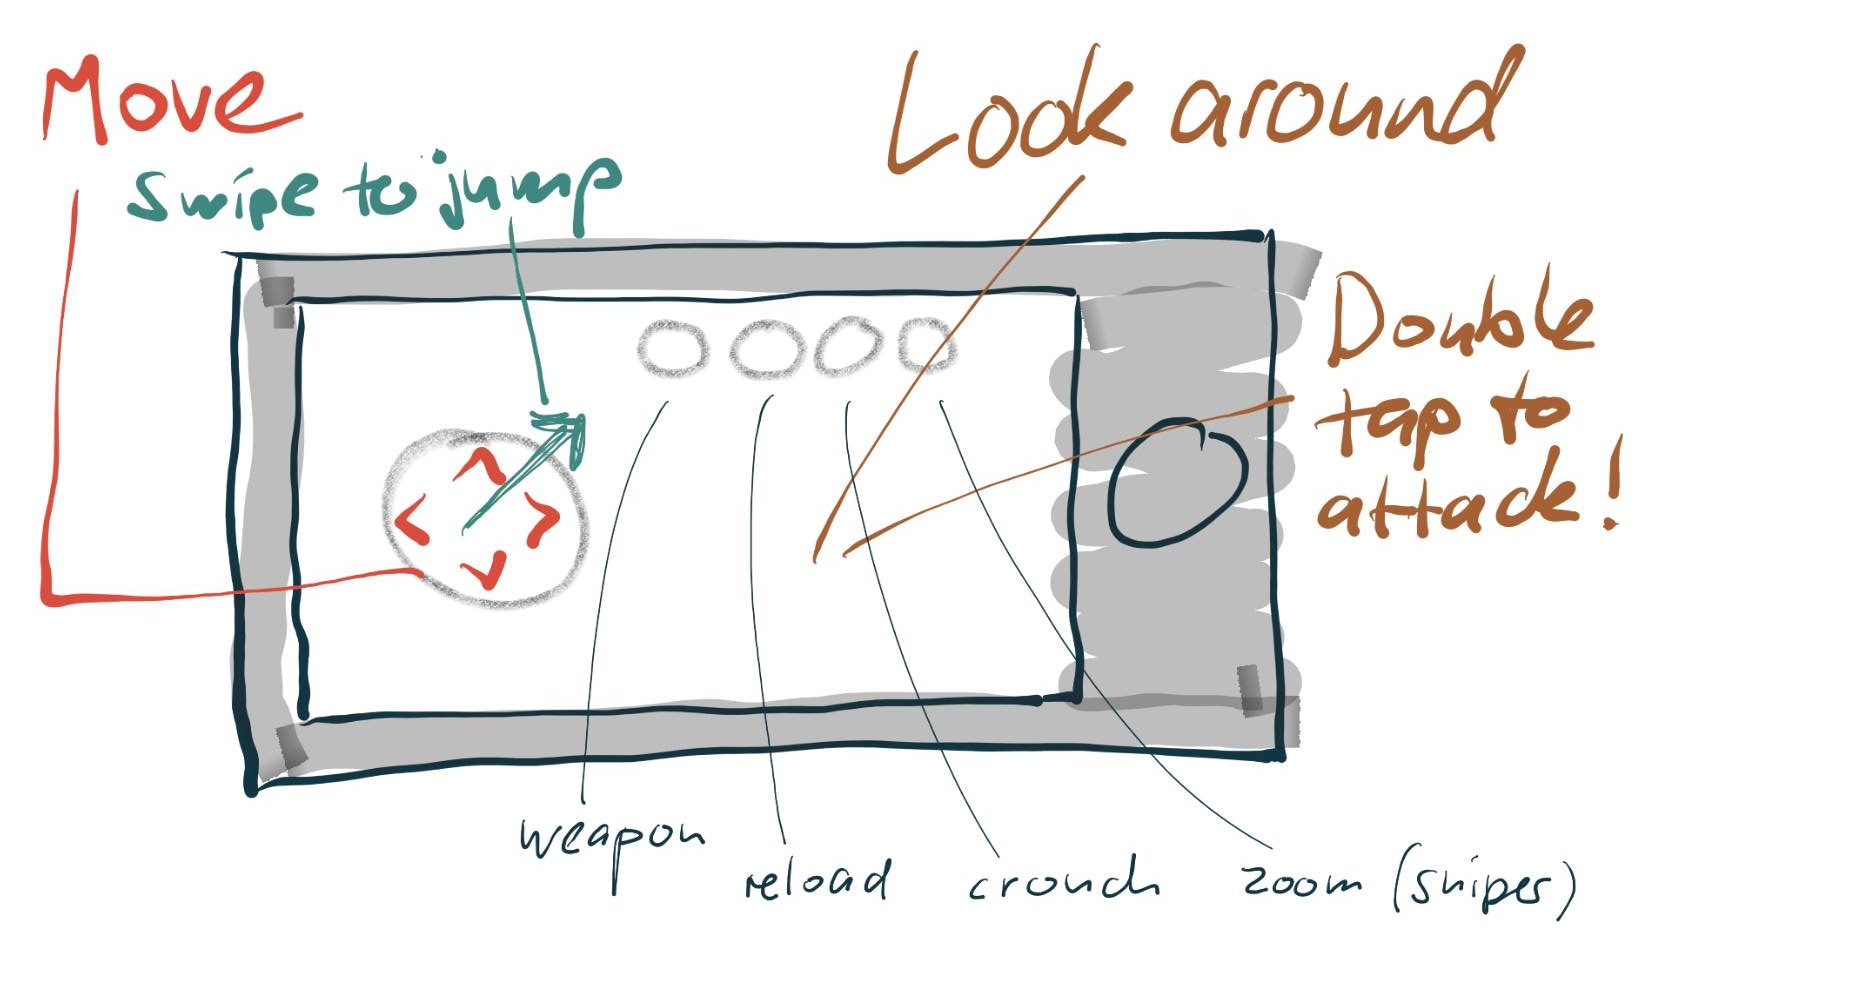 Move
Swipe to jump
Look around
Double
tap to
attack!
weapon
reload
crouch
zoom (sniper)